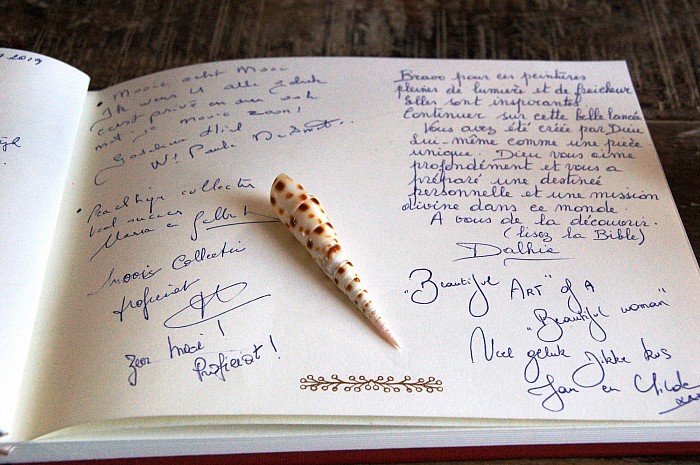 2019
Mooie echt Mooi
Ik wens u alle geluk
met je mooie zoon!
Goedele Hiel
W. Paula
Prachtige collectie
Veel succes
Maria en
Moois Collectie
proficiat
Zeer Mooi!
Proficiat!
Bravo pour ces peintures
pleines de lumière et de fraicheur
Elles sont inspirantes.
Continuer sur cette belle lancée
Vous avez été créée par Dieu
Lui-même comme une pièce
unique. Dieu vous aime
profondément et vous a
préparé une destinée
personnelle et une mission
divine dans ce monde.
A vous de la découvrir.
(lisez la Bible)
Dalhie
"Beautiful ART" of A
"Beautiful woman"
Veel geluk dikke kus
Jan en Hilde
xxx